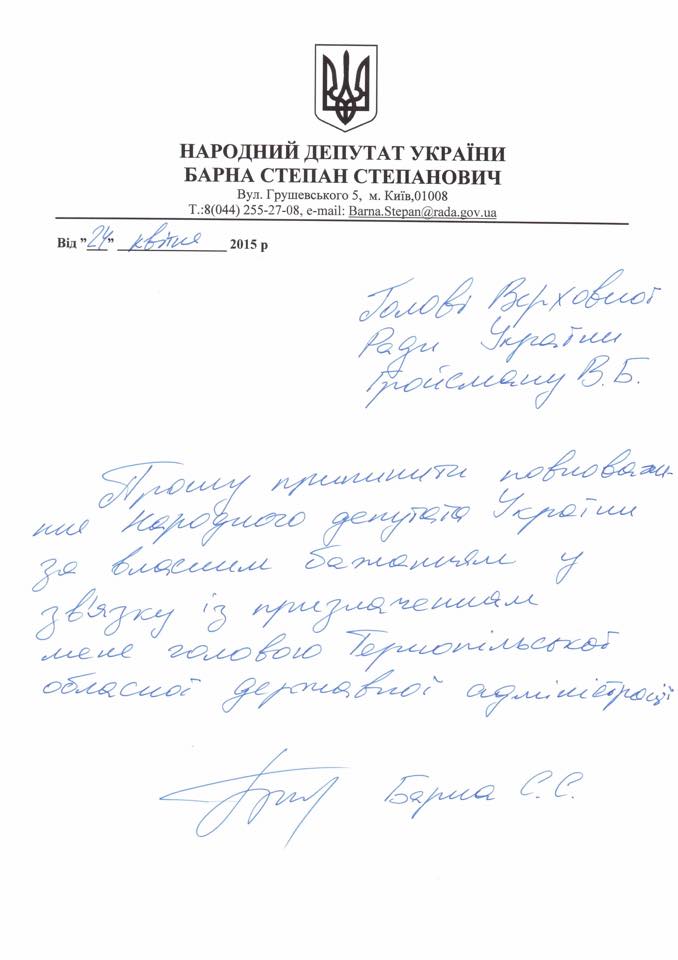 НАРОДНИЙ ДЕПУТАТ УКРАЇНИ
БАРНА СТЕПАН СТЕПАНОВИЧ
Вул. Грушевського 5, м. Київ,01008
Т.:8(044) 255-27-08, e-mail: Barna.Stepan@rada.gov.ua
Від "24" квітня 2015 р
Голові Верховної
Ради України
Гройсману В.Б.
Прошу припинити повноважен-
ня Народного депутата України
за власним бажанням у
зв'язку із призначенням
мене головою Тернопільської
обласної державної адміністрації
Барна С.С.